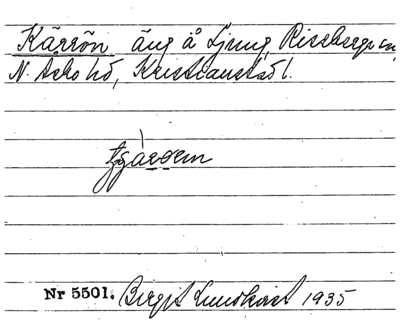 Kärrön äng å Ljung, Riseberga sn,
N. Åsbo hd, Kristianstad l.
Nr 5501. Birgit Lundkvist 1935